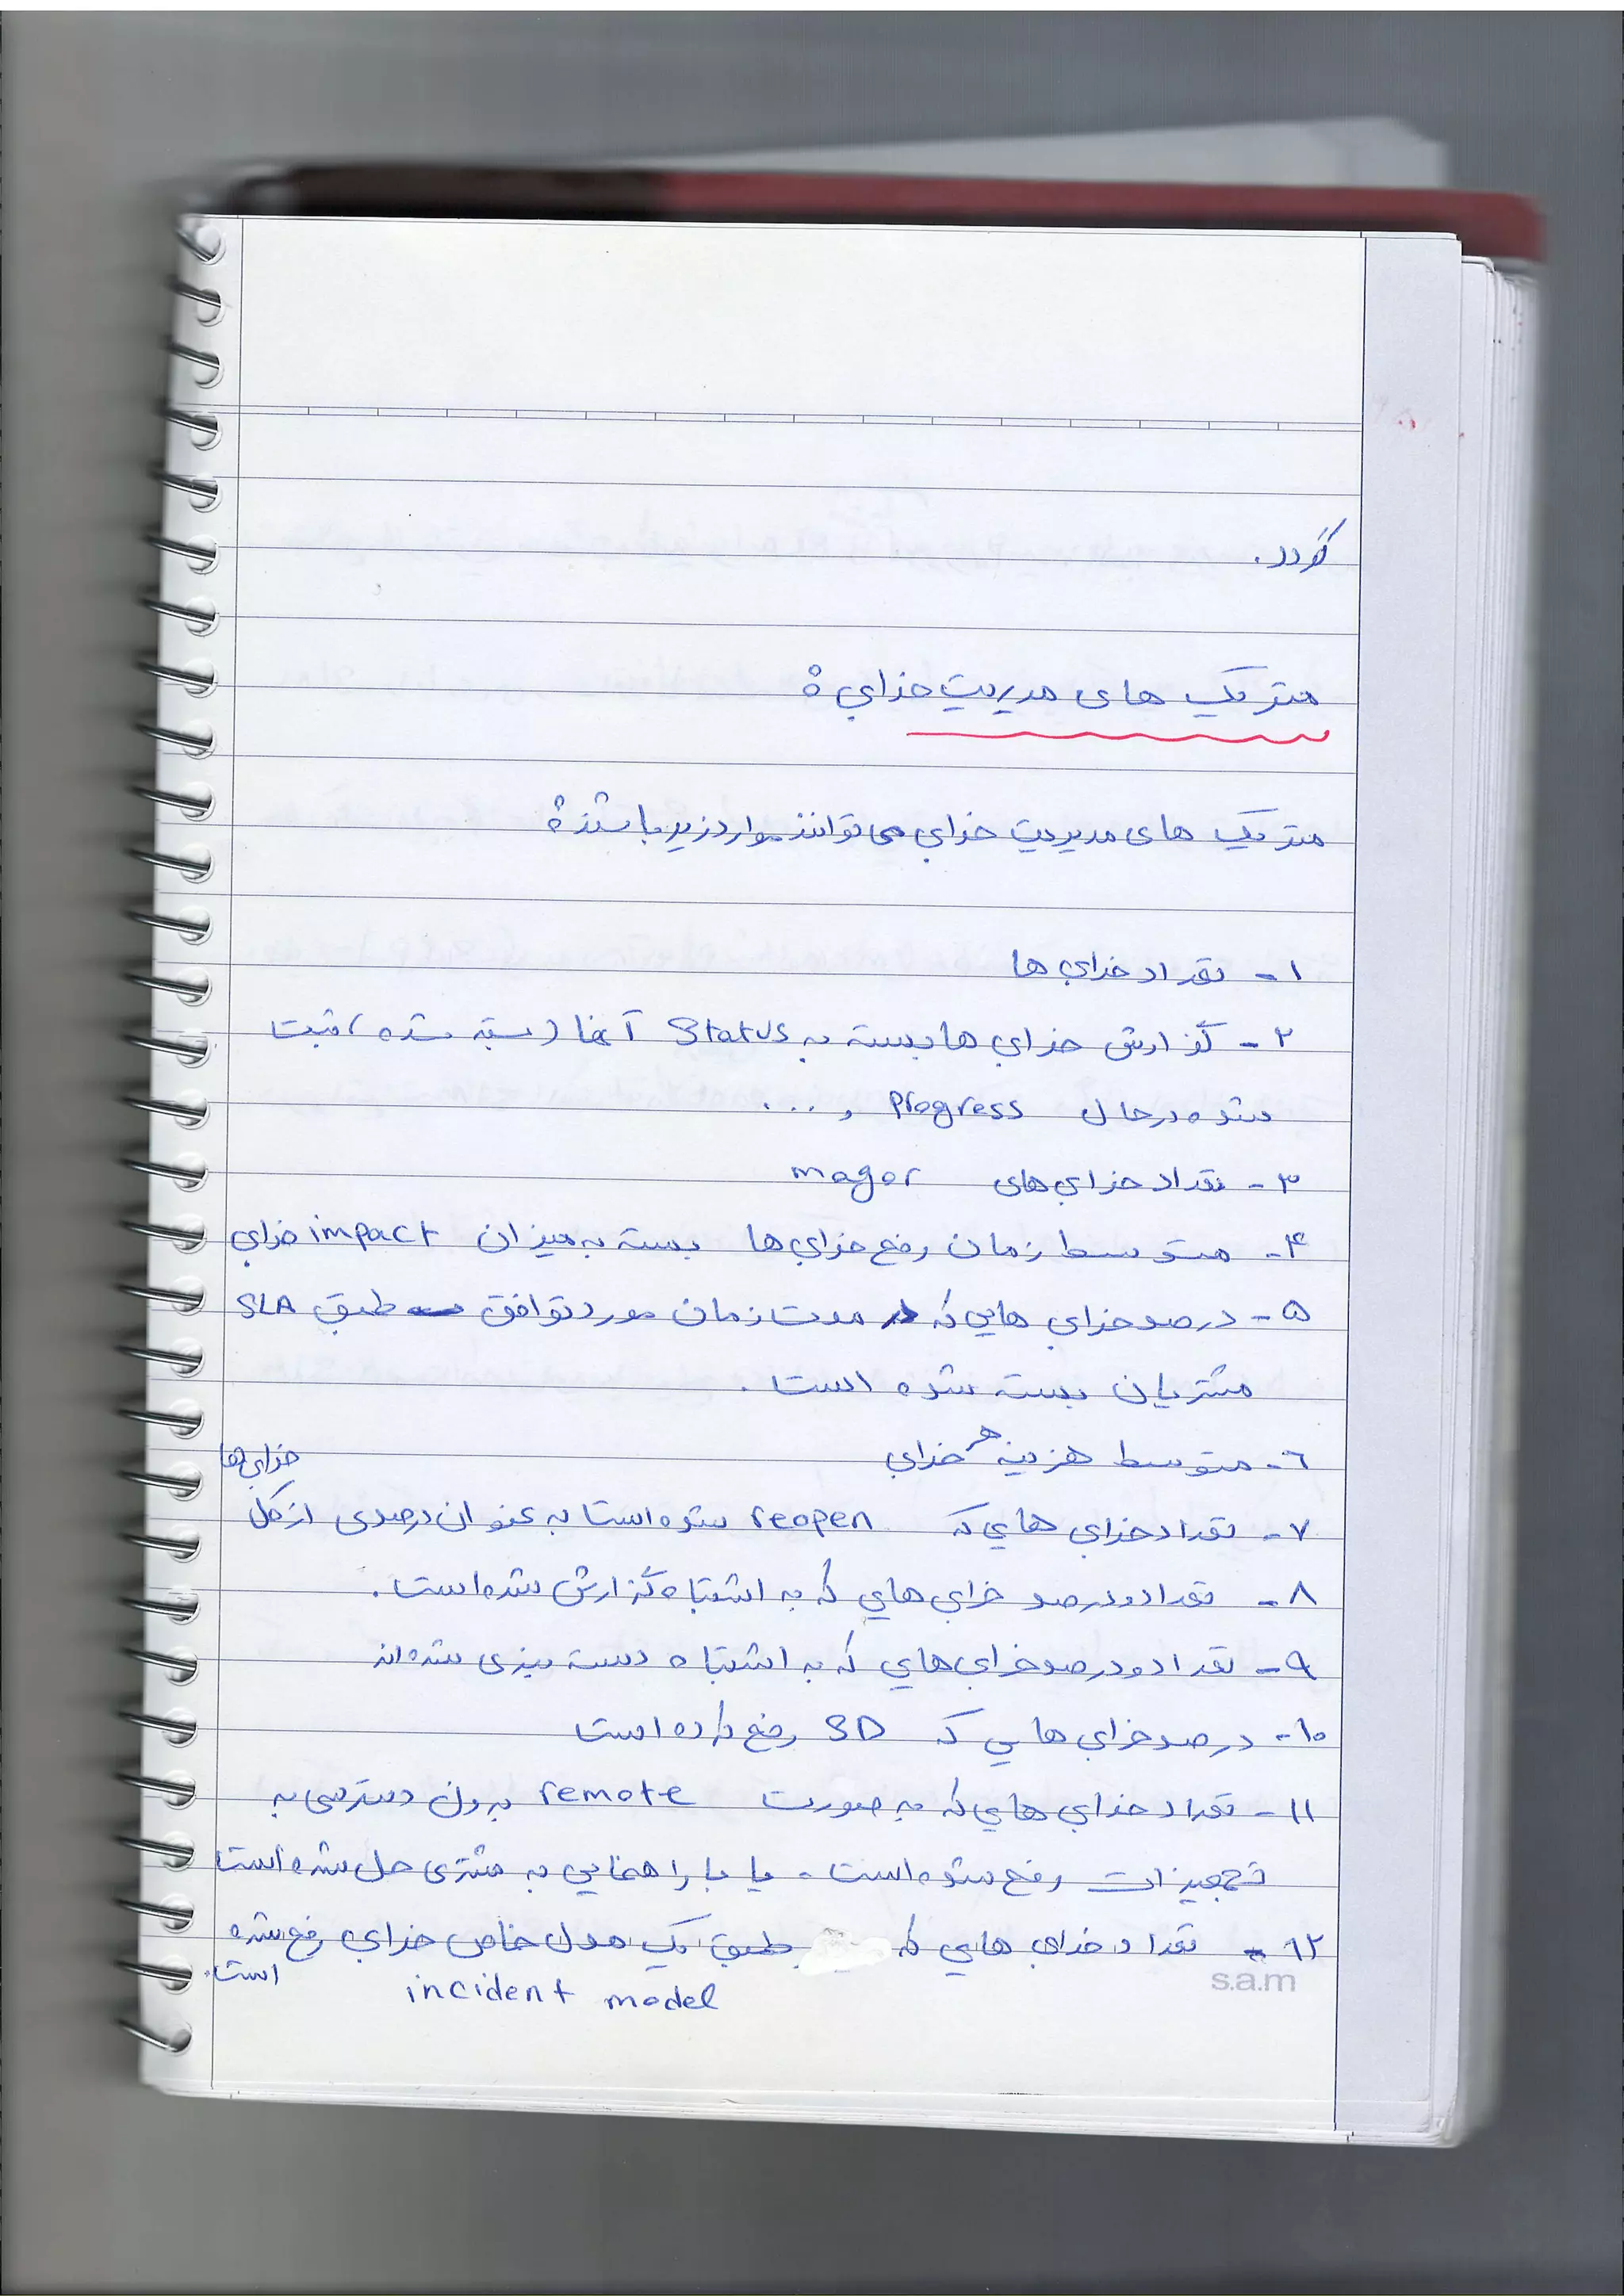 گردد.
متریک های مدیریت خرابی :
متریک های مدیریت خرابی می توانند موارد زیر باشند :
۱- تعداد خرابی ها
۲- گزارش خرابی ها بسته به Status آنها (بسته شده ، ثبت
شده درحال Progress و ...
۳- تعداد خرابی های magor
۴- متوسط زمان رفع خرابی ها بسته به میزان impact خرابی
۵- درصد خرابی هایی که در مدت زمان مورد توافق طبق SLA
مشتریان بسته شده است .
۶- متوسط هزینه هر خرابی
۷- تعداد خرابی هایی که reopen شده است به عنوان درصدی از کل خرابی ها
۸- تعداد و درصد خرابی هایی که به اشتباه گزارش شده است .
۹- تعداد و درصد خرابی هایی که به اشتباه دسته بندی شده اند
۱۰- درصد خرابی هایی که SD رفع کرده است
۱۱- تعداد خرابی هایی که به صورت remote بدون دسترسی به
تجهیزات رفع شده است . یا با راهنمایی به مشتری حل شده است
۱۲- تعداد خرابی هایی که طبق یک مدل خاص خرابی رفع شده
است.
incident model
s.a.m